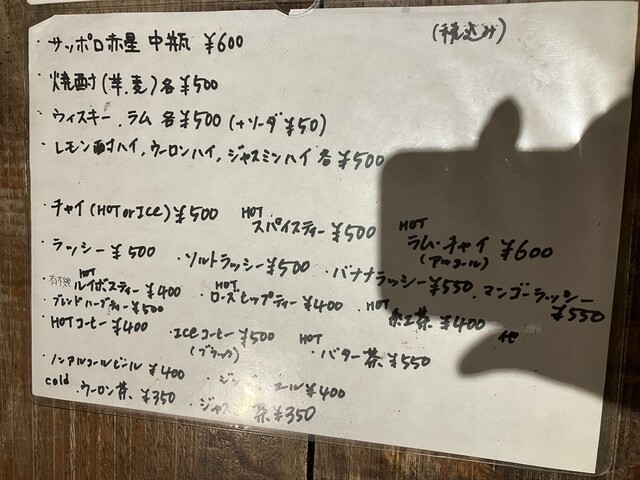 (税込み)
・サッポロ赤星 中瓶 ¥600
・焼酎(芋、麦)各¥500
・ウィスキー、ラム 各¥500(+ソーダ¥50)
・レモン酎ハイ, ウーロンハイ, ジャスミンハイ 各¥500
・チャイ(HOT or Ice)¥500 HOT スパイスティー¥500 HOT ラム・チャイ ¥600
(アルコール)
・ラッシー¥500 ・ソルトラッシー¥500 ・バナナラッシー¥550 ・マンゴーラッシー ¥550
・有機 HOT ルイボスティー¥400 ・HOT ローズヒップティー¥400 ・HOT 紅茶 ¥400
・ブレンドハーブティー¥500 他
・HOTコーヒー¥400 ・Iceコーヒー¥500 HOT ・バター茶¥550
(ブラック)
・ノンアルコールビール¥400 ・ジン エール¥400
cold ・ウーロン茶、¥350 ・ジャス 茶¥350